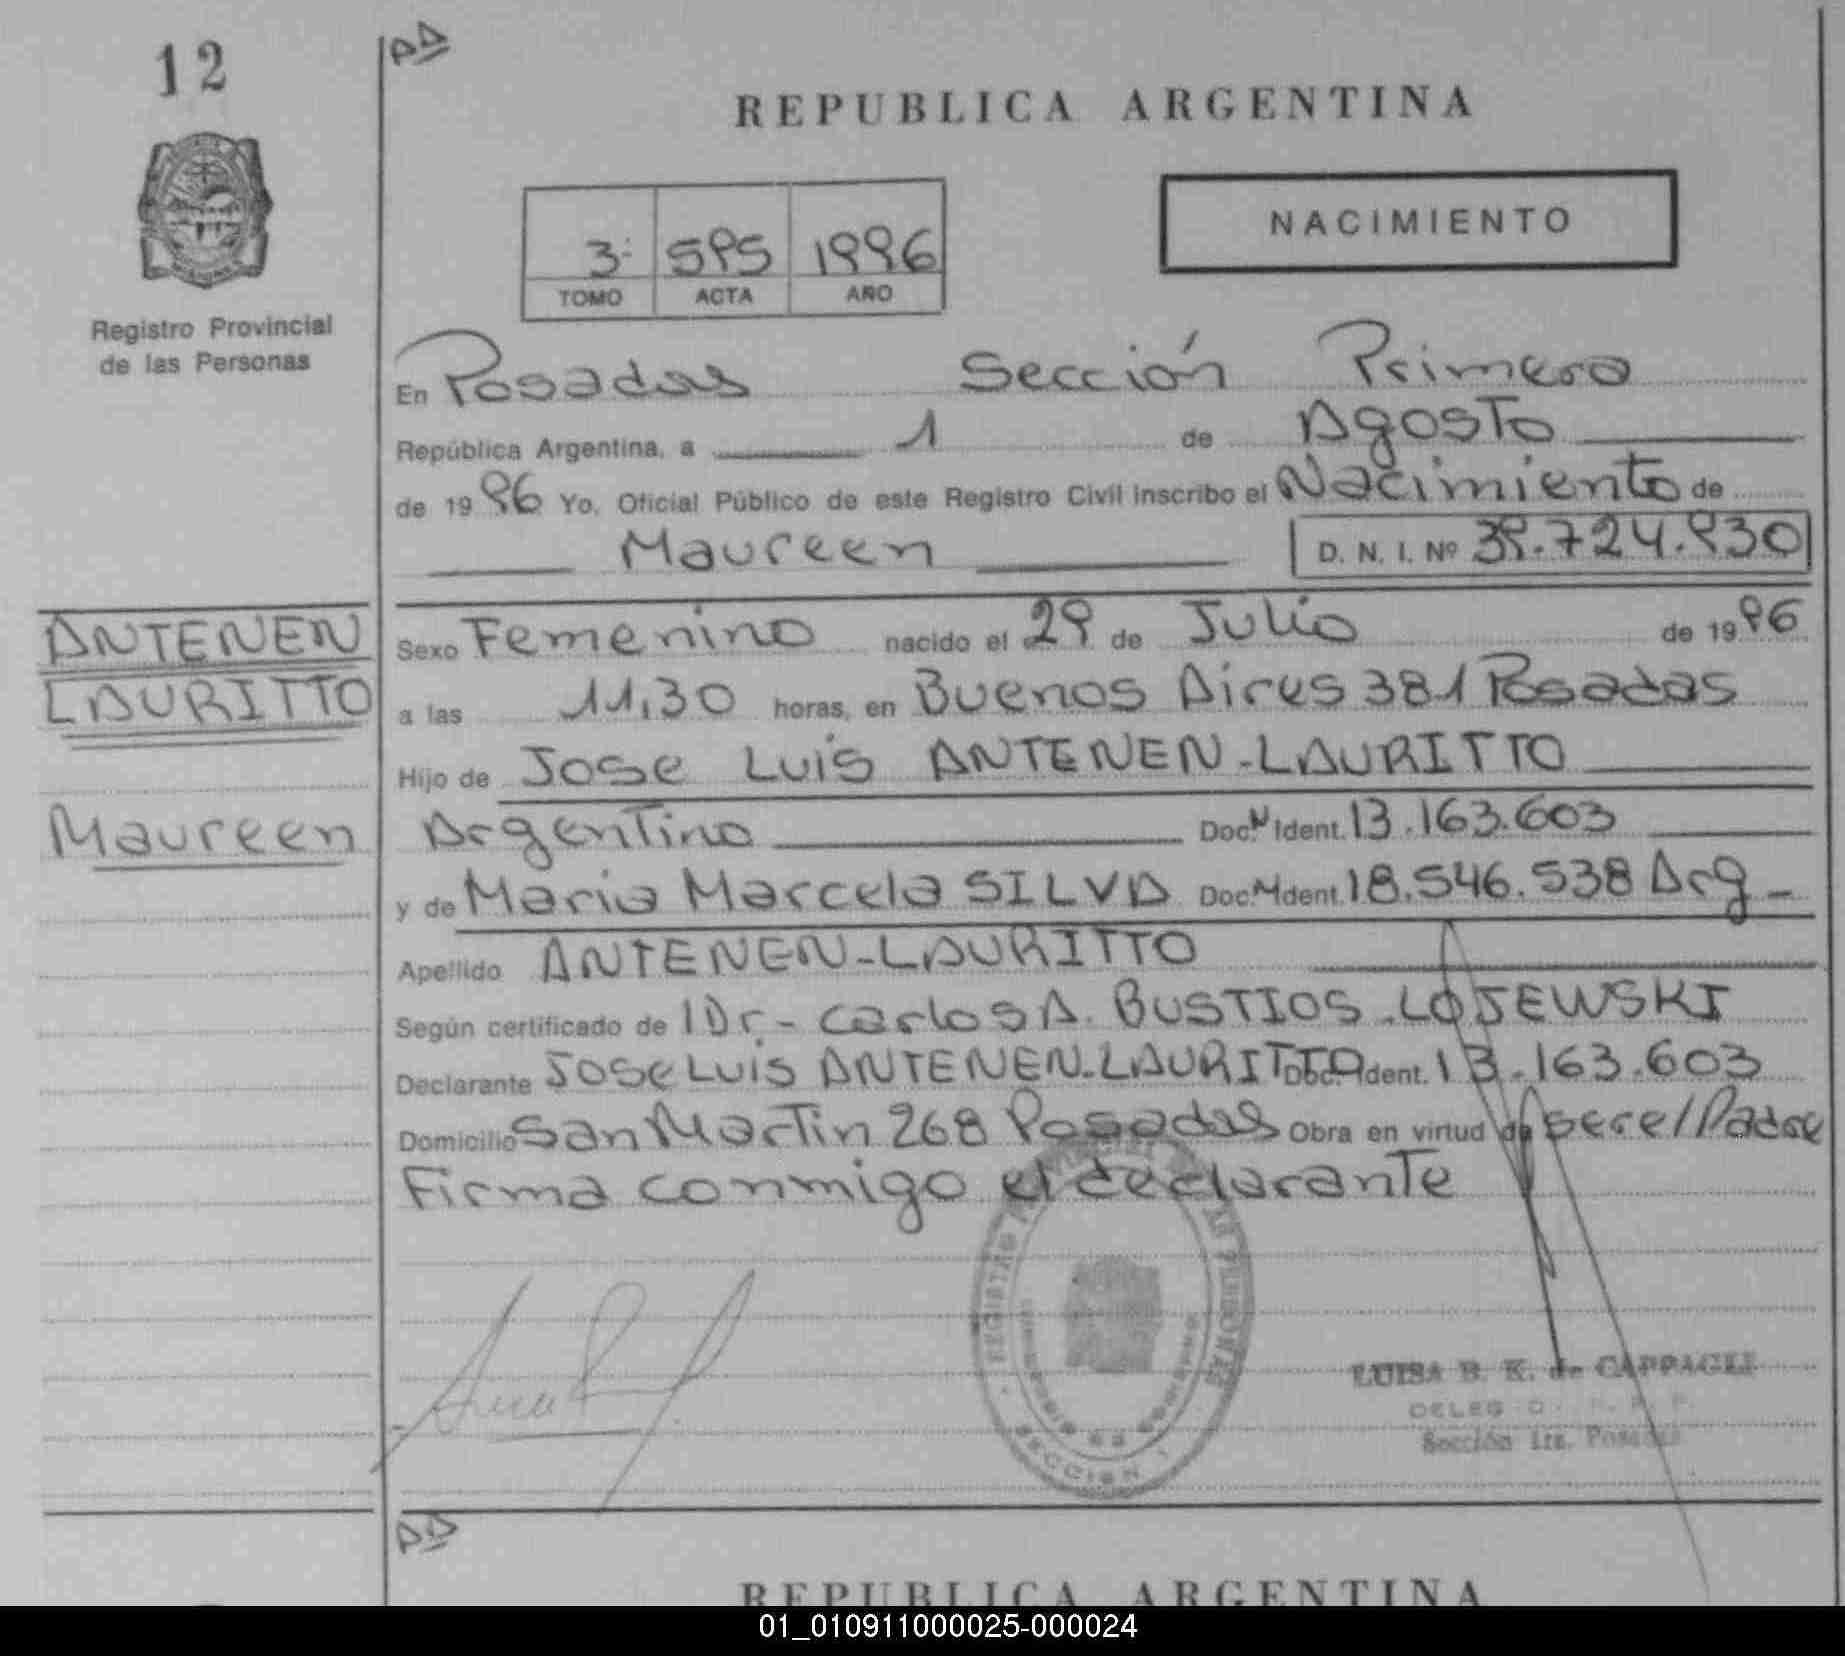 12
REPUBLICA ARGENTINA
NACIMIENTO
3: 595 1996
TOMO ACTA AÑO
Registro Provincial
de las Personas
En Posadas Sección Primera
República Argentina, a 1 de Agosto
de 1996 Yo, Oficial Público de este Registro Civil inscribo el Nacimiento de
Maureen D. N. I. Nº 39.724.930
ANTENEN
LAURITTO
Maureen
Sexo Femenino nacido el 29 de Julio de 1996
a las 11,30 horas, en Buenos Aires 381 Posadas
Hijo de Jose Luis ANTENEN-LAURITTO
Argentino Doc. Ident. 13.163.603
y de Maria Marcela SILVA Doc. Ident. 18.546.538 Arg -
Apellido ANTENEN-LAURITTO
Según certificado de Dr.- Carlos A. BUSTIOS LOJEWSKI
Declarante JOSE LUIS ANTENEN-LAURITTO Doc. Ident. 13.163.603
Domicilio San Martin 268 Posadas Obra en virtud de ser el Padre
Firma conmigo el declarante
REGISTRO PROVINCIAL DE LAS PERSONAS
SECCION 1
LUISA B. K. de CAPPAGLI
Sección 1ra. Posadas
REPUBLICA ARGENTINA
01_010911000025-000024